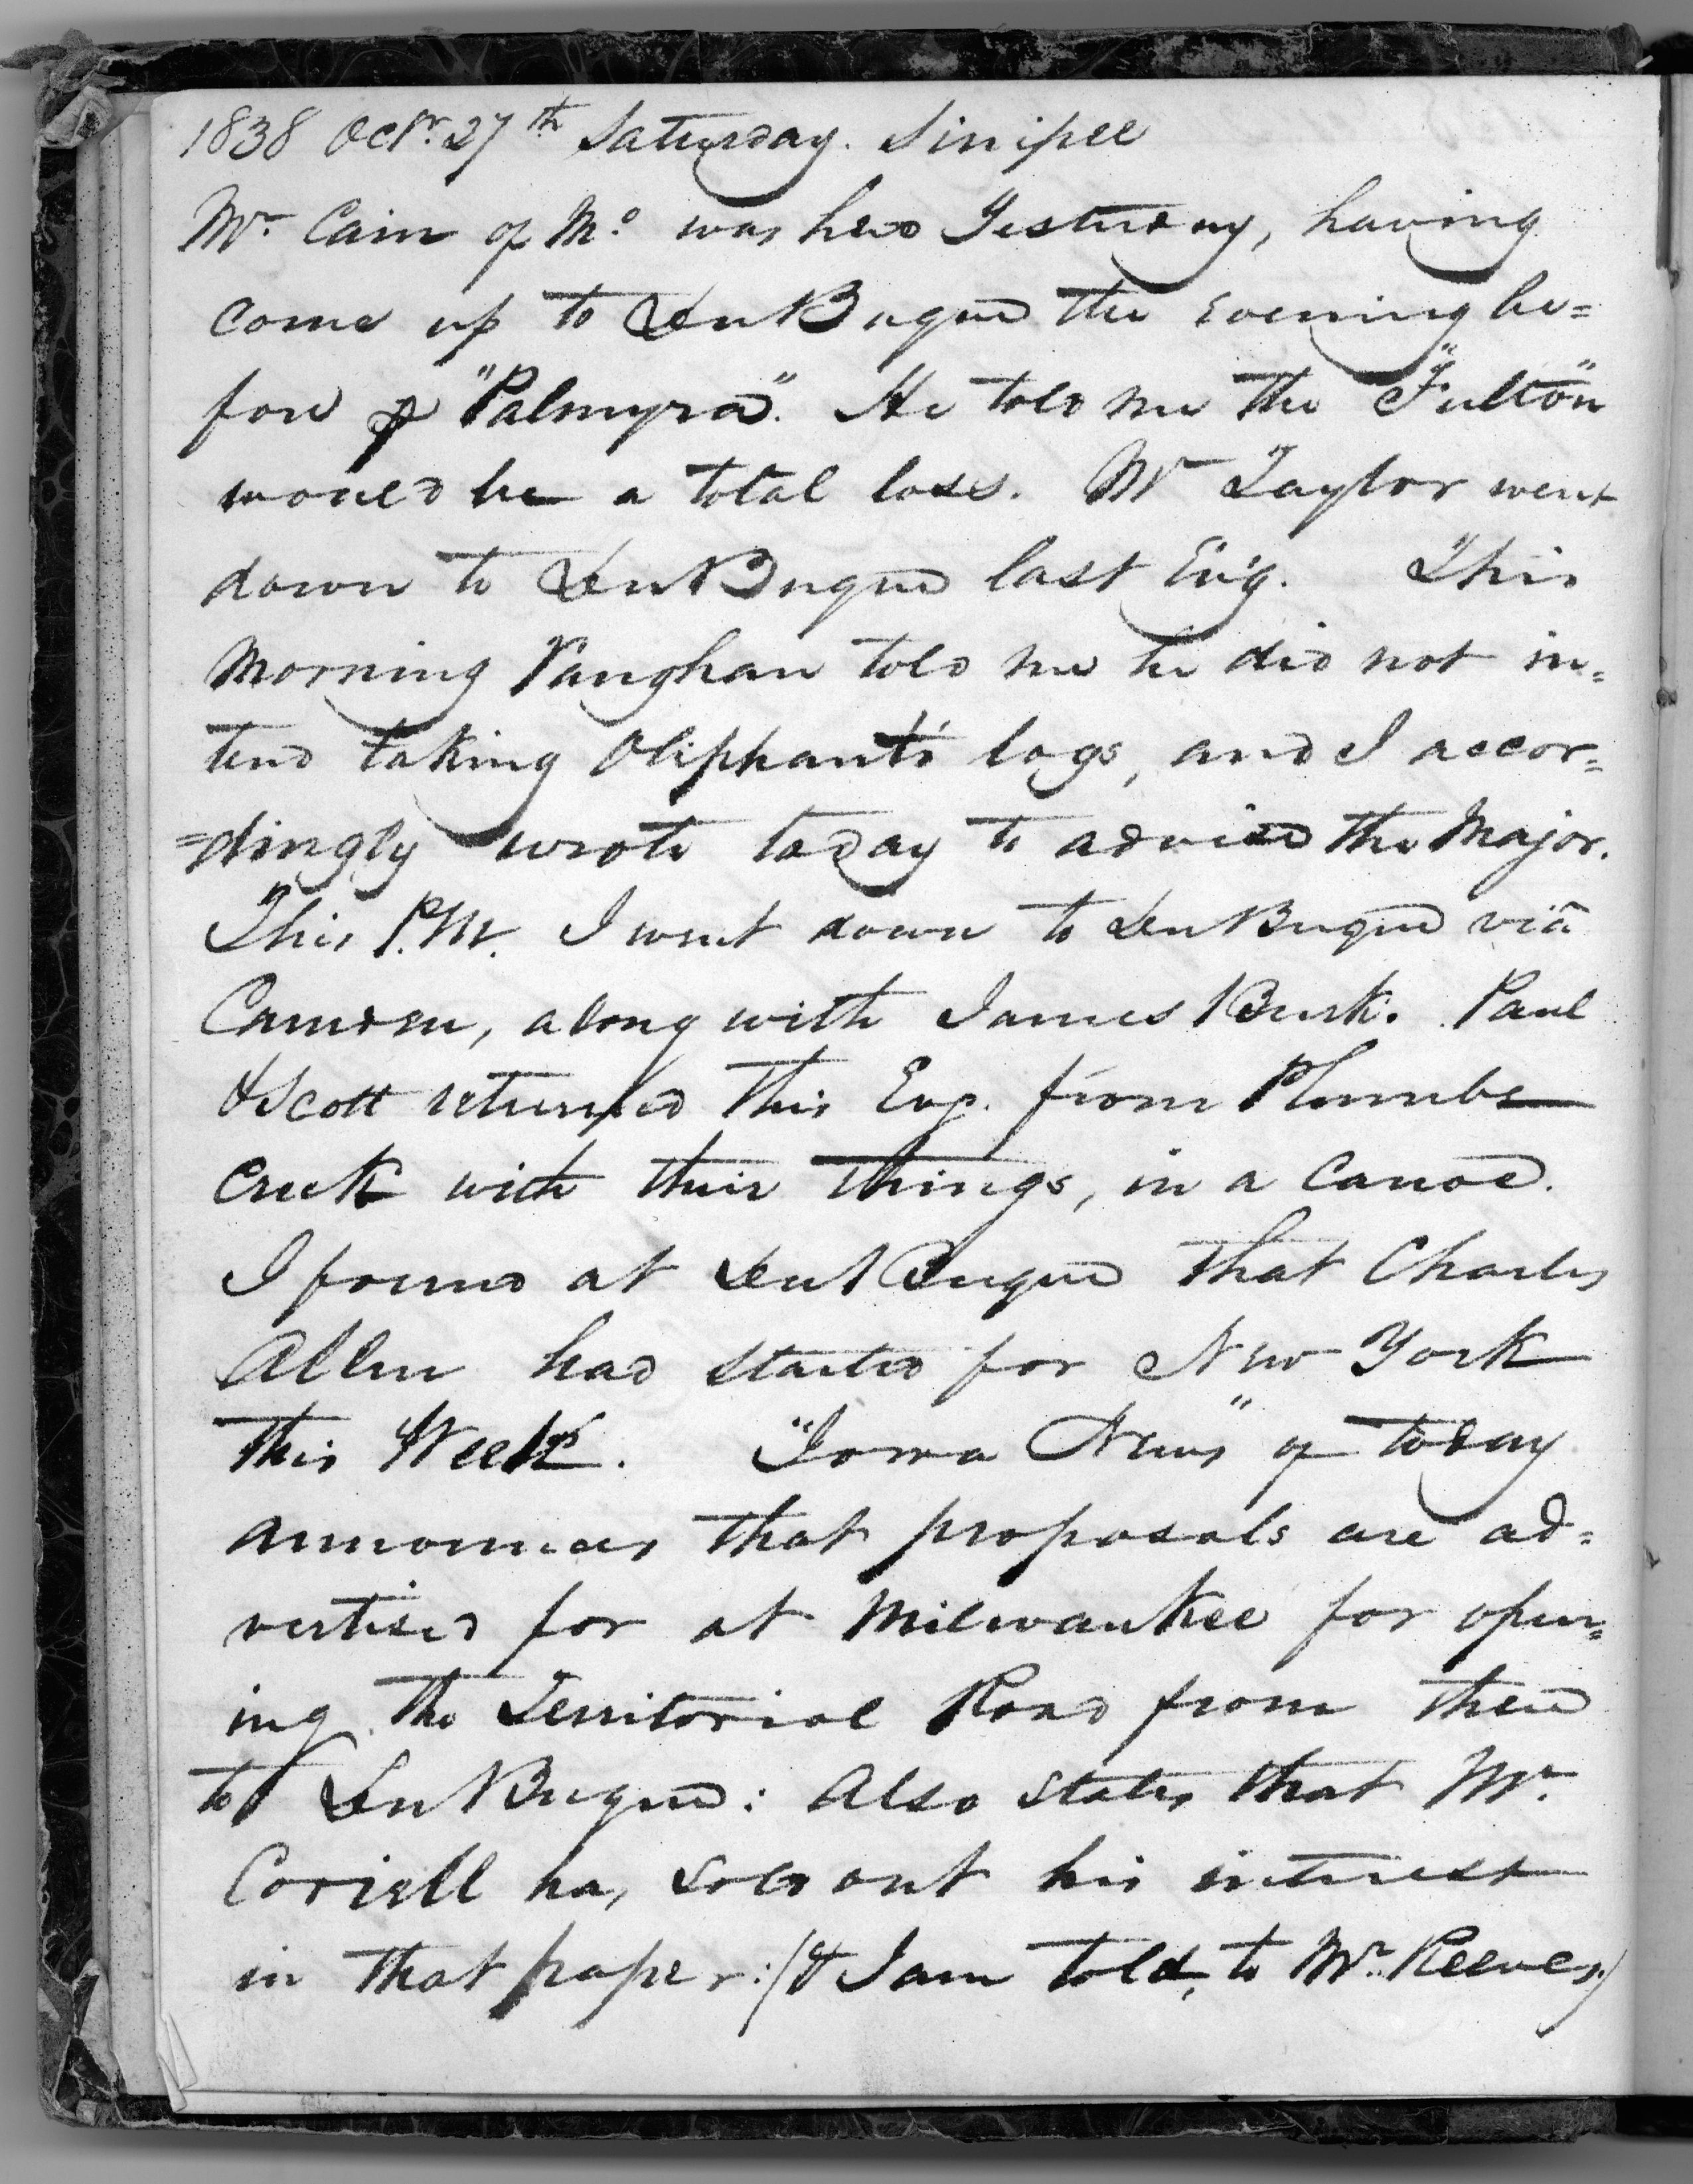 1838 Octr. 27th Saturday. Sinipee
Mr. Cain of Mo. was here Yesterday, having
come up to DuBuque the Evening be=
fore p "Palmyra". He told me the "Fulton"
would be a total loss. Mr Taylor went
down to DuBuque last Ev'g. This
Morning Vaughan told me he did not in=
tend taking Oliphant's logs, and I accor=
=dingly wrote today to advise the Major.
This P.M. I went down to DuBuque via
Cameron, along with James Burk. Paul
& Scott returned this Evg. from Plumbs
Creek with their things, in a Canoe.
I found at DuBuque that Charles
Allen had started for New York
this Week. "Iowa News" of today
announces that proposals are ad=
vertised for at Milwaukee for open=
ing the Territorial Road from there
to DuBuque: Also states that Mr.
Coriell has sold out his interest
in that paper: (& I am told, to Mr. Reeves.)